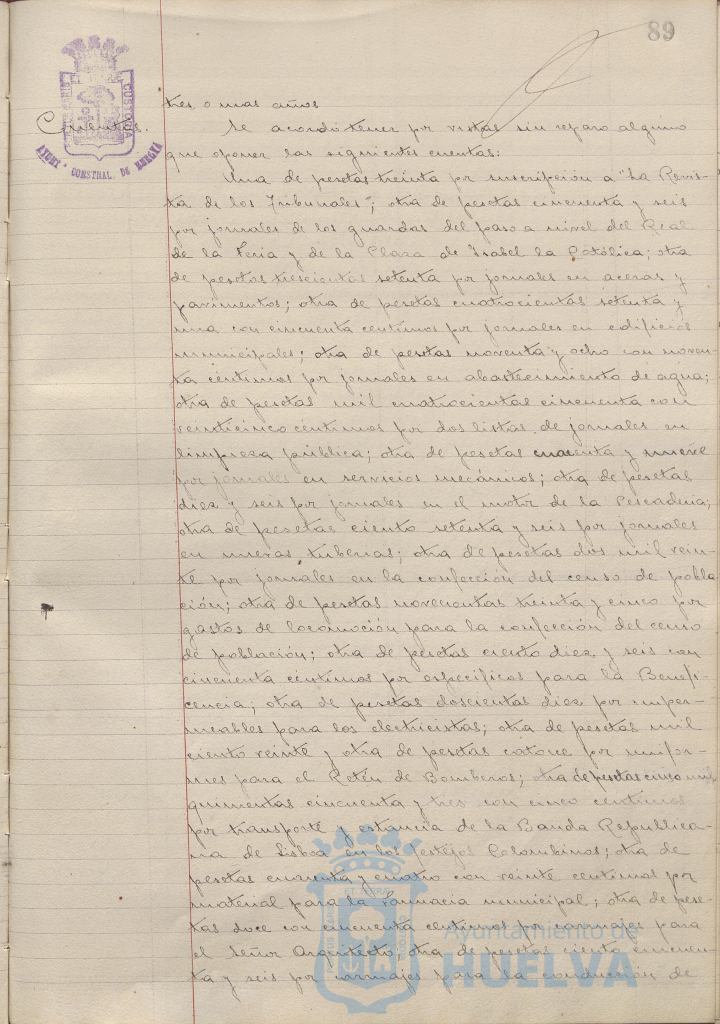 89
tres o mas años
Cuentas.
Se acordó tener por vistas sin reparo alguno
que oponer las siguientes cuentas:
Una de pesetas treinta por suscripción a "La Revis-
ta de los Tribunales"; otra de pesetas cincuenta y seis
por jornales de los guardas del paso a nivel del Real
de la Feria y de la Plaza de Isabel la Católica; otra
de pesetas trescientas setenta por jornales en aceras y
pavimentos; otra de pesetas cuatrocientas setenta y
una con cincuenta centimos por jornales en edificios
municipales; otra de pesetas noventa y ocho con noven-
ta céntimos por jornales en abastecimiento de agua;
otra de pesetas mil cuatrocientas cincuenta con
veinticinco céntimos por dos listas de jornales en
limpieza pública; otra de pesetas y nueve
por jornales en servicios mecánicos; otra de pesetas
diez y seis por jornales en el motor de la Pescaderia;
otra de pesetas ciento setenta y seis por jornales
en nuevas tuberias; otra de pesetas dos mil vein-
te por jornales en la confección del censo de pobla-
ción; otra de pesetas novecientas treinta y cinco por
gastos de locomoción para la confección del censo
de población; otra de pesetas ciento diez y seis con
cincuenta céntimos por específicos para la Benefi-
cencia; otra de pesetas doscientas diez por imper-
meables para los electricistas; otra de pesetas mil
ciento veinte y otra de pesetas catorce por unifor-
mes para el Retén de Bomberos; otra de pesetas cinco mil
quinientas cincuenta y tres con cinco centimos
por transporte y estancia de la Banda Republica-
na de Lisboa en los festejos Colombinos; otra de
pesetas cuarenta y cuatro con veinte centimos por
material para la Farmacia municipal; otra de pese-
tas doce con cincuenta centimos por carruajes para
el Señor Arquitecto otra de pesetas ciento cincuen-
ta y seis por carruajes para la conducción de
AYUNT. CONSTNAL. DE HUELVA
Ayuntamiento de
HUELVA